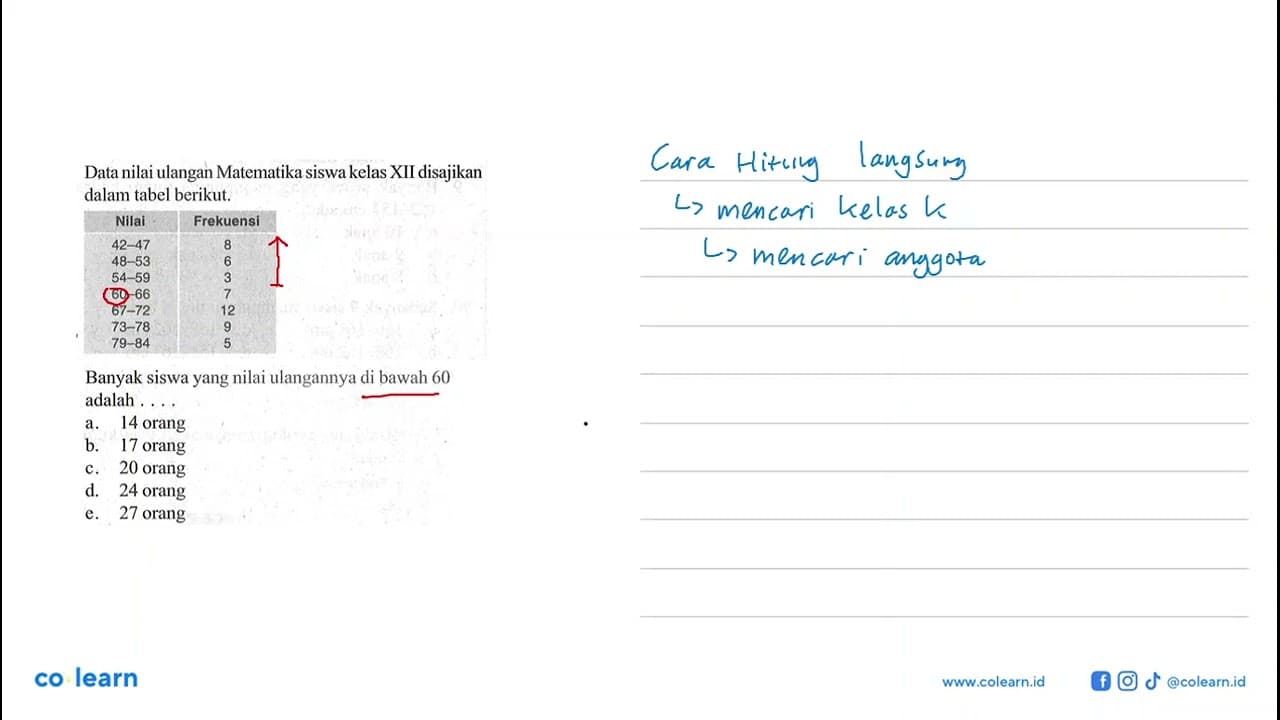 Data nilai ulangan Matematika siswa kelas XII disajikan
dalam tabel berikut.
Nilai Frekuensi
42–47 8
48–53 6
54–59 3
60–66 7
67–72 12
73–78 9
79–84 5
Banyak siswa yang nilai ulangannya di bawah 60
adalah . . . .
a. 14 orang
b. 17 orang
c. 20 orang
d. 24 orang
e. 27 orang
Cara Hitung langsung
↳ mencari kelas k
↳ mencari anggota
co learn
www.colearn.id
@colearn.id